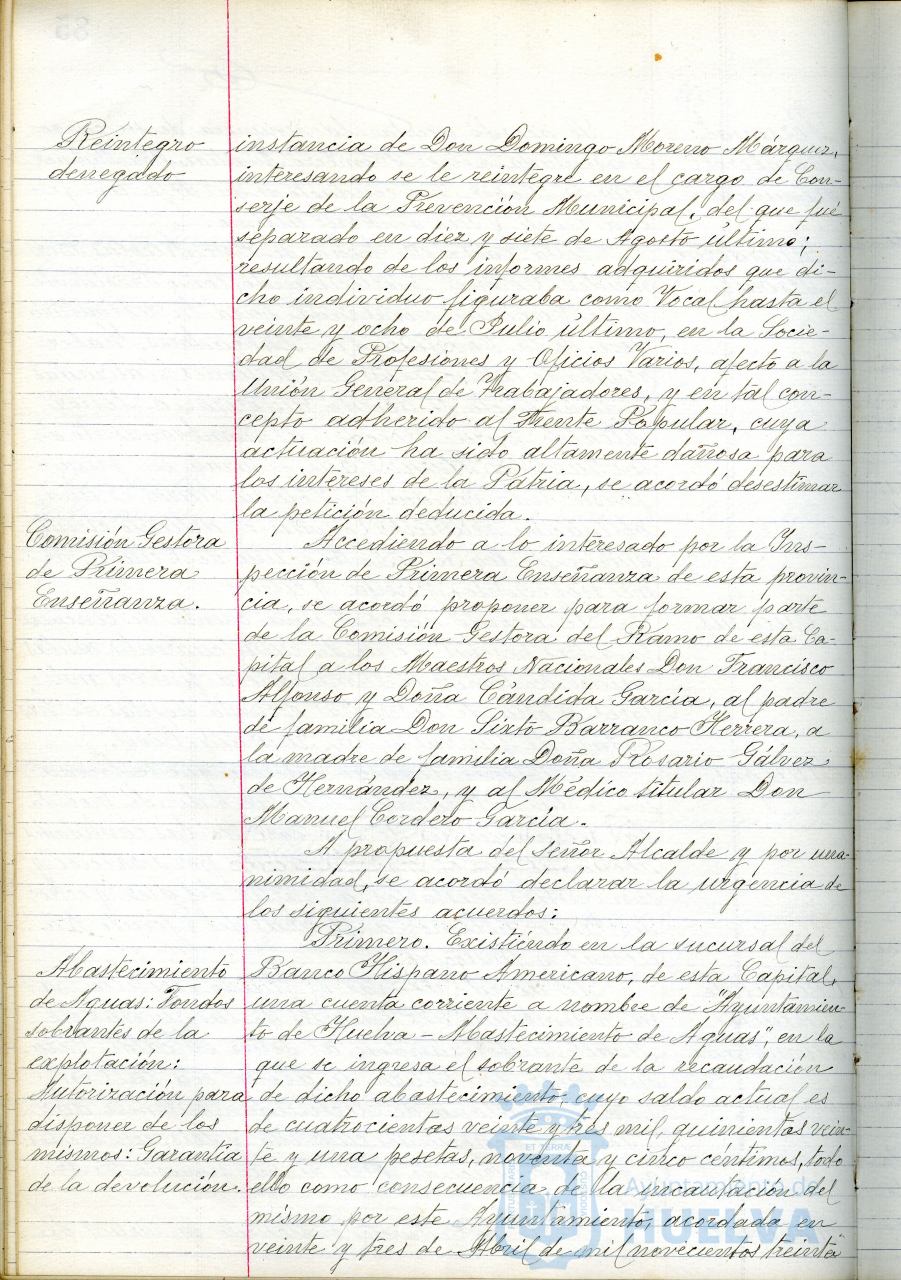 Reintegro
denegado
instancia de Don Domingo Moreno Márquez,
interesando se le reintegre en el cargo de Con-
serje de la Prevención Municipal, del que fué
separado en diez y siete de Agosto último;
resultando de los informes adquiridos que di-
cho individuo figuraba como Vocal hasta el
veinte y ocho de Julio último, en la Socie-
dad de Profesiones y Oficios Varios, afecto a la
Unión General de Trabajadores, y en tal con-
cepto adherido al Frente Popular, cuya
actuación ha sido altamente dañosa para
los intereses de la Patria, se acordó desestimar
la petición deducida.
Comisión Gestora
de Primera
Enseñanza.
Accediendo a lo interesado por la Ins-
pección de Primera Enseñanza de esta provin-
cia, se acordó proponer para formar parte
de la Comisión Gestora del Ramo de esta Ca-
pital a los Maestros Nacionales Don Francisco
Alfonso y Doña Cándida García, al padre
de familia Don Sixto Barranco Herrera, a
la madre de familia Doña Rosario Gálvez
de Hernández, y al Médico titular Don
Manuel Cordero García.
A propuesta del Señor Alcalde y por una-
nimidad, se acordó declarar la urgencia de
los siguientes acuerdos:
Primero. Existiendo en la sucursal del
Abastecimiento
de Aguas: Fondos
sobrantes de la
explotación:
Autorización para
disponer de los
mismos: Garantía
de la devolución.
Banco Hispano Americano, de esta Capital,
una cuenta corriente a nombre de "Ayuntamien-
to de Huelva - Abastecimiento de Aguas", en la
que se ingresa el sobrante de la recaudación
de dicho abastecimiento, cuyo saldo actual es
de cuatrocientas veinte y tres mil, quinientas vein-
te y una pesetas, noventa y cinco centimos, todo
ello como consecuencia de la incautación del
mismo por este Ayuntamiento, acordada en
veinte y tres de Abril de mil novecientos treinta
Ayuntamiento de
HUELVA